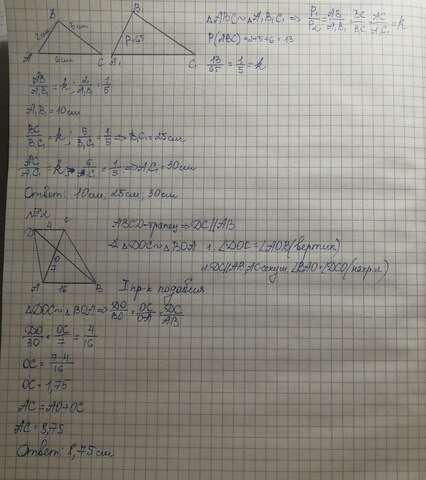 B
2см 5см
A 6см C
B₁
P=65
A₁ C₁
△ABC~△A₁B₁C₁ ⇒ P₁/P₂ = AB/A₁B₁ = BC/B₁C₁ = AC/A₁C₁ = k
P(ABC) = 2+5+6 = 13
13/65 = 1/5 = k
AB/A₁B₁ = k; 2/A₁B₁ = 1/5
A₁B₁ = 10см
BC/B₁C₁ = k; 5/B₁C₁ = 1/5 ⇒ B₁C₁ = 25см
AC/A₁C₁ = k; 6/A₁C₁ = 1/5 ⇒ A₁C₁ = 30см
Ответ: 10см, 25см, 30см
№2
D 4 C
O
7
A 16 B
ABCD-трапец ⇒ DC||AB
△DOC~△BOA 1. ∠DOC=∠AOB (вертик)
2. DC||AB, AC-секущ, ∠BAO=∠DCO
I пр-к подобия
△DOC~△BOA ⇒ DO/BO = OC/OA = DC/AB
DO/BO = OC/7 = 4/16
OC = 7·4/16
OC = 1,75
AC = AO+OC
AC = 8,75
Ответ: 8,75см